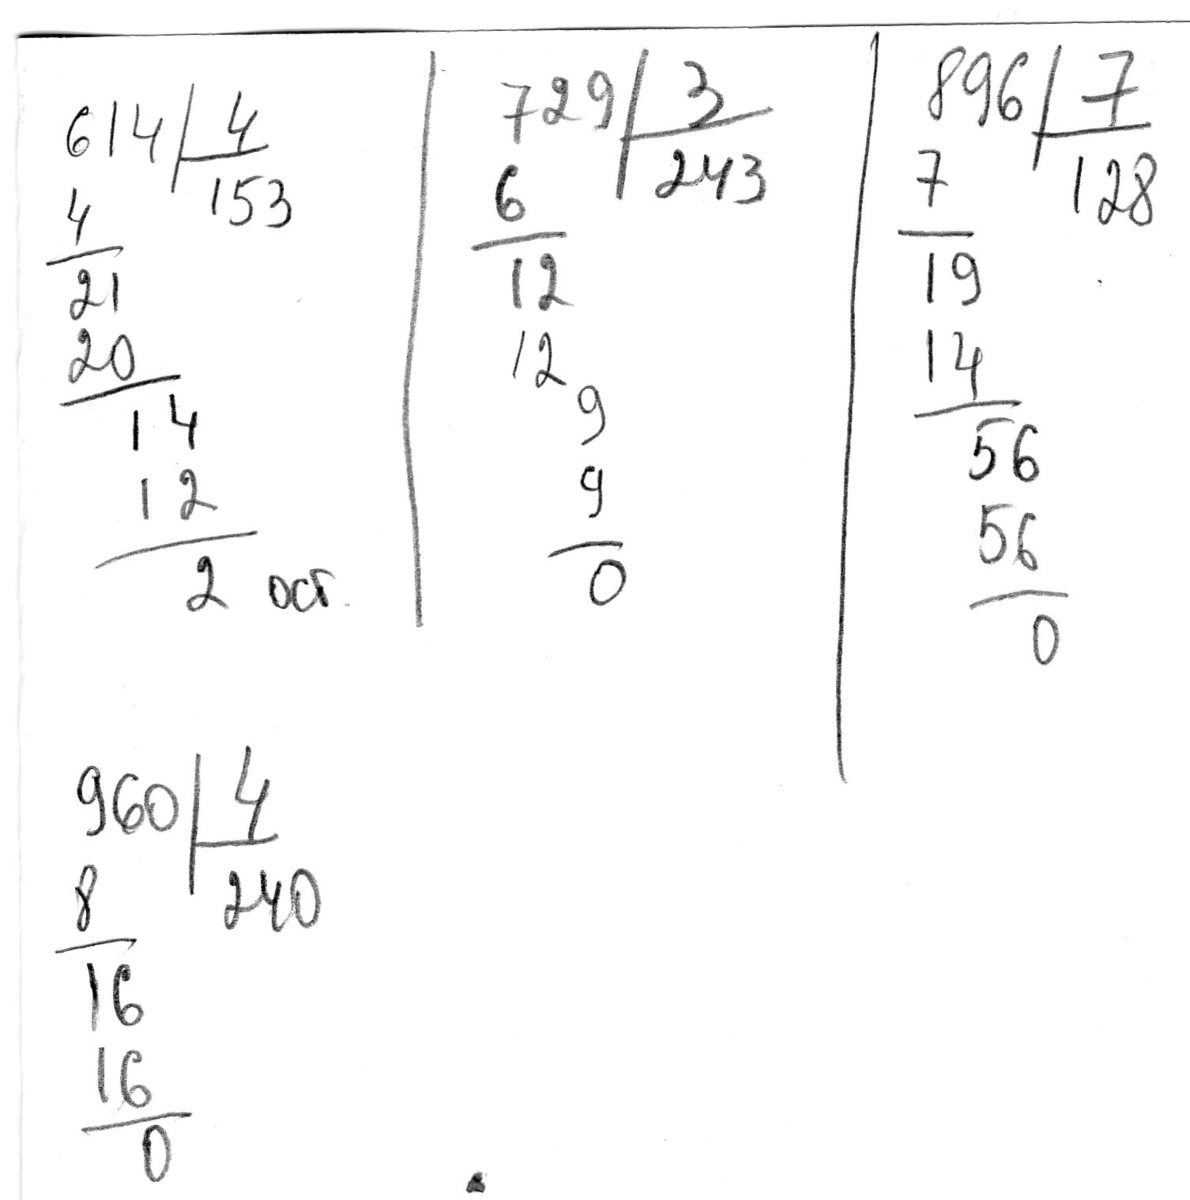 614 4
153
4
21
20
14
12
2 ост.
729 3
243
6
12
12
9
9
0
896 7
128
7
19
14
56
56
0
960 4
240
8
16
16
0